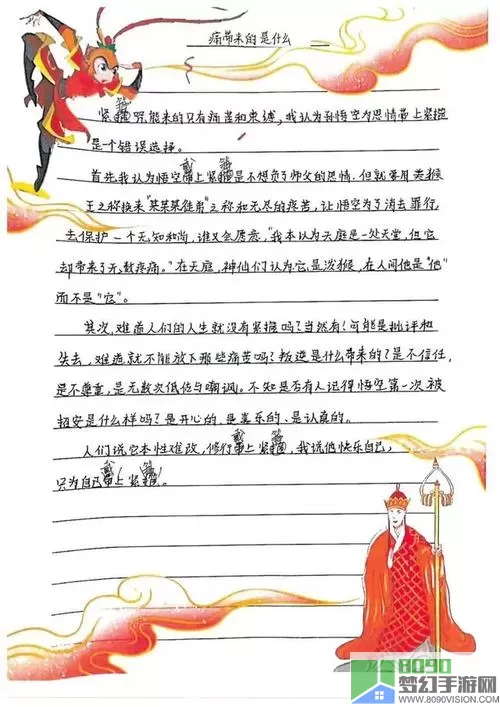 痛带来的是什么
紧箍咒能来的只有痛苦和束缚,我认为孙悟空为恩情带上紧箍
是个错误选择。
首先我认为悟空戴上紧箍是不想负了师父的恩情,但就要用美猴
王之称换来“某某某徒弟”之称和无尽的疼苦,让悟空为了消去罪行
去保护一个无知和尚,谁又会愿意,“我本以为天庭是一处天堂,但它
却带来了无数疼痛。”在天庭,神仙们认为它是泼猴,在人间他是“他”
而不是“它”。
其次,难道人们的人生就没有紧箍吗?当然有!可能是批评和
失去,难道就不能放下那些痛苦吗?叛逆是什么带来的?是不信任,
是不尊重,是无数次低估与嘲讽。不知是否有人记得悟空第一次被
招安是什么样吗?是开心的、是喜乐的、是认真的。
人们说它本性难改,修行戴上紧箍,我说他快乐自己,
只为自己戴上紧箍!
8090
梦幻手游网
WWW.8090VISION.COM